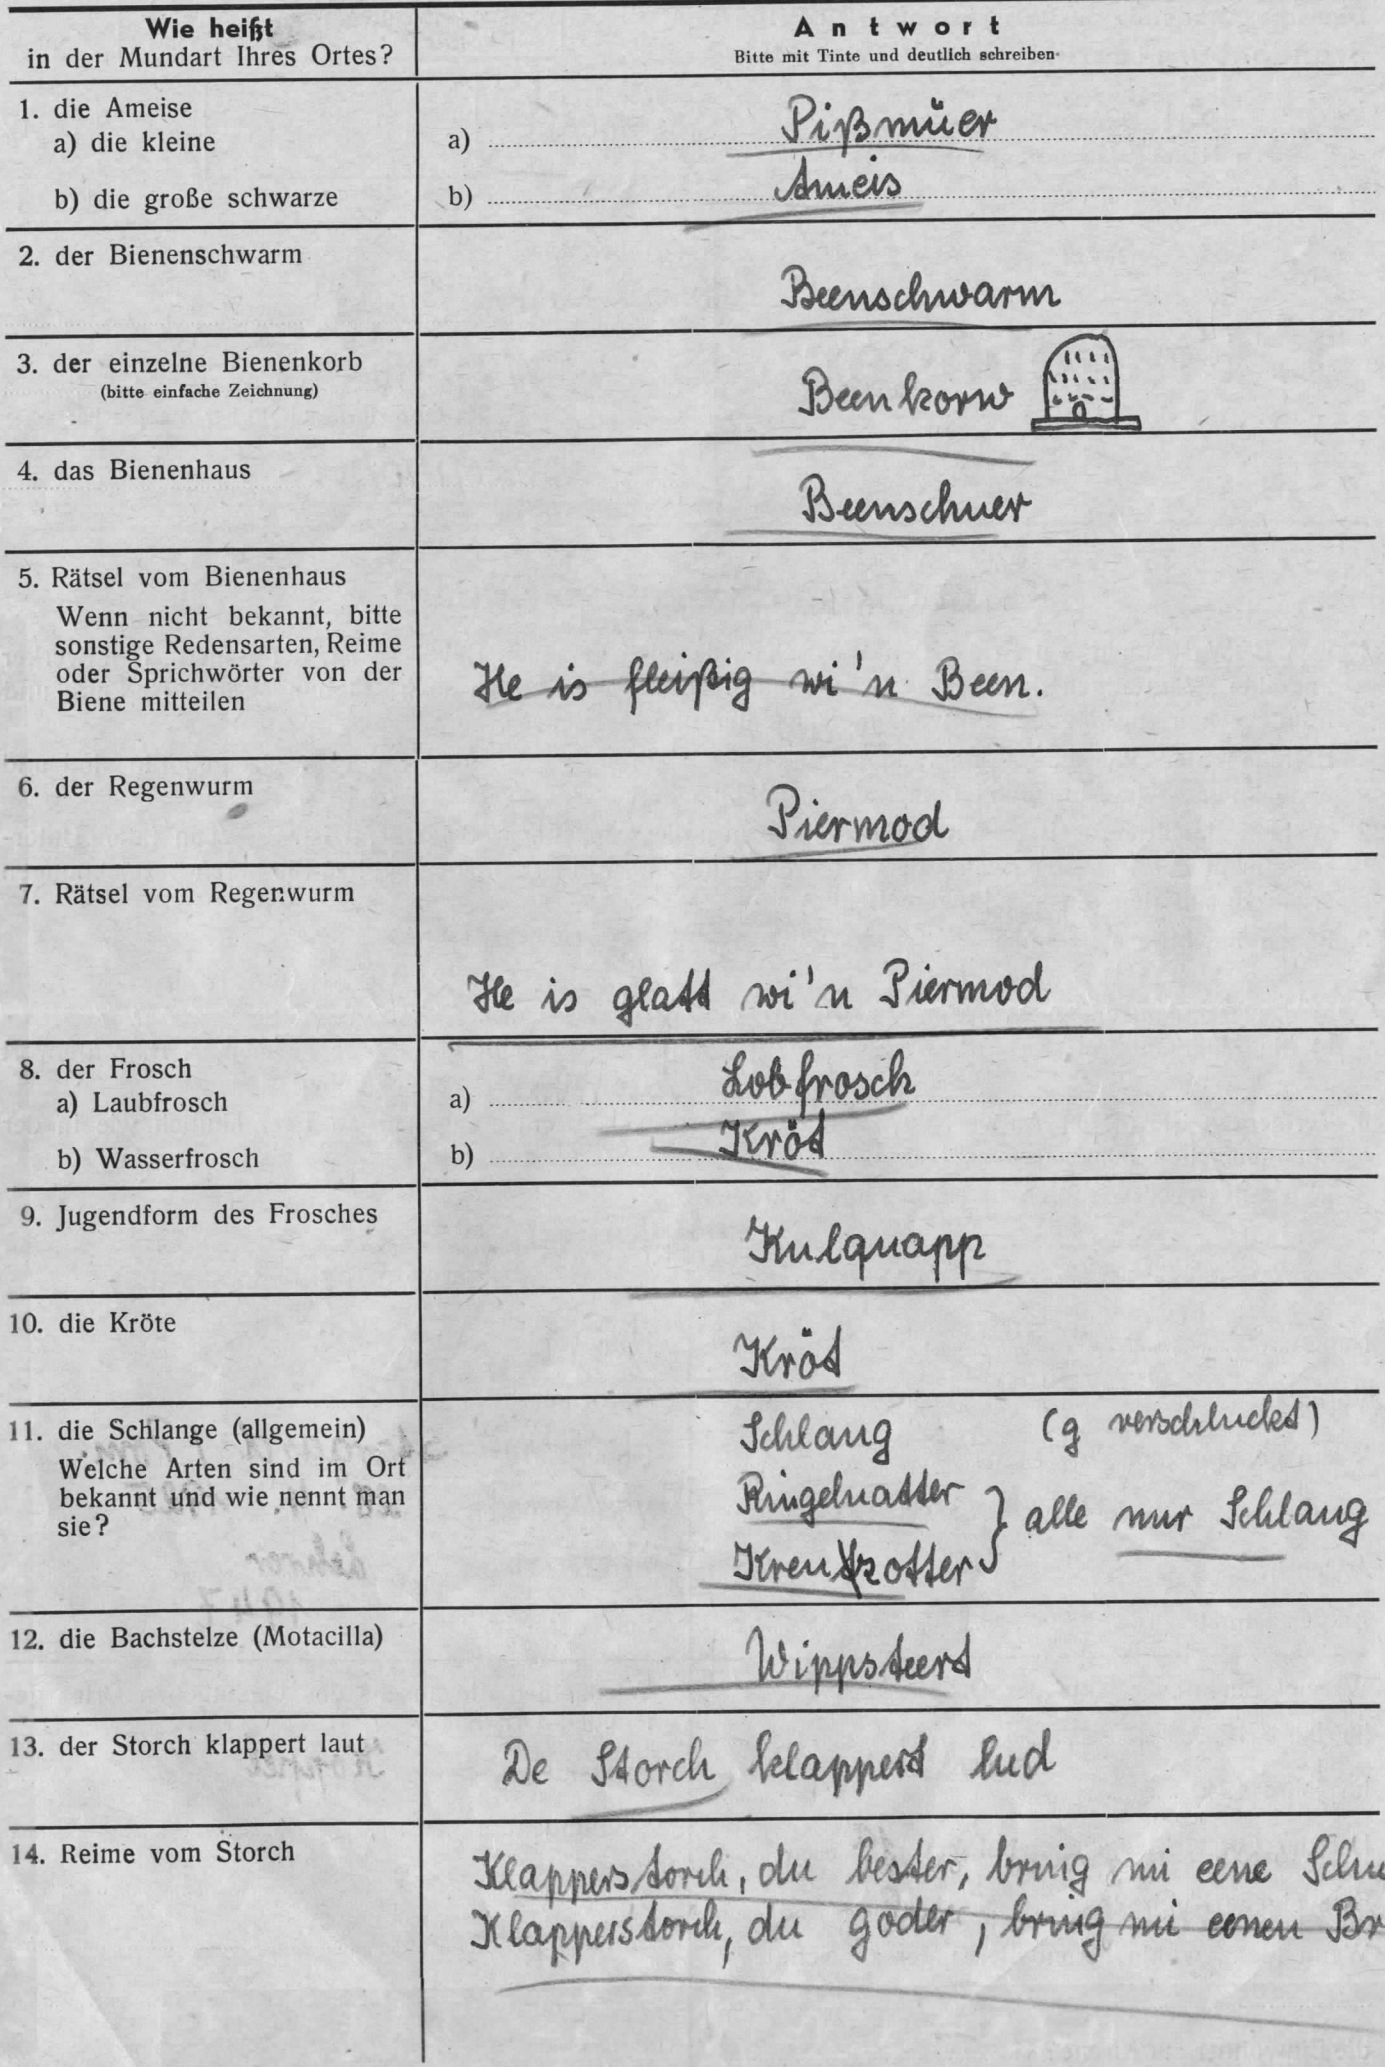 Wie heißt
in der Mundart Ihres Ortes?
Antwort
Bitte mit Tinte und deutlich schreiben
1. die Ameise
a) die kleine
a) Pißmüer
b) die große schwarze
b) Ameis
2. der Bienenschwarm
Beenschwarm
3. der einzelne Bienenkorb
(bitte einfache Zeichnung)
Beenkorw
4. das Bienenhaus
Beenschuer
5. Rätsel vom Bienenhaus
Wenn nicht bekannt, bitte
sonstige Redensarten, Reime
oder Sprichwörter von der
Biene mitteilen
He is fleißig wi'n Been.
6. der Regenwurm
Piermod
7. Rätsel vom Regenwurm
He is glatt wi'n Piermod
8. der Frosch
a) Laubfrosch
a) Lobfrosch
b) Wasserfrosch
b) Kröt
9. Jugendform des Frosches
Kulquapp
10. die Kröte
Kröt
11. die Schlange (allgemein)
Welche Arten sind im Ort
bekannt und wie nennt man
sie?
Schlang (g verschluckt)
Ringelnatter
Kreuzotter } alle nur Schlang
12. die Bachstelze (Motacilla)
Wippsteert
13. der Storch klappert laut
De Storch klappert lud
14. Reime vom Storch
Klapperstorch, du bester, bring mi eene
Klapperstorch, du goder, bring mi eenen